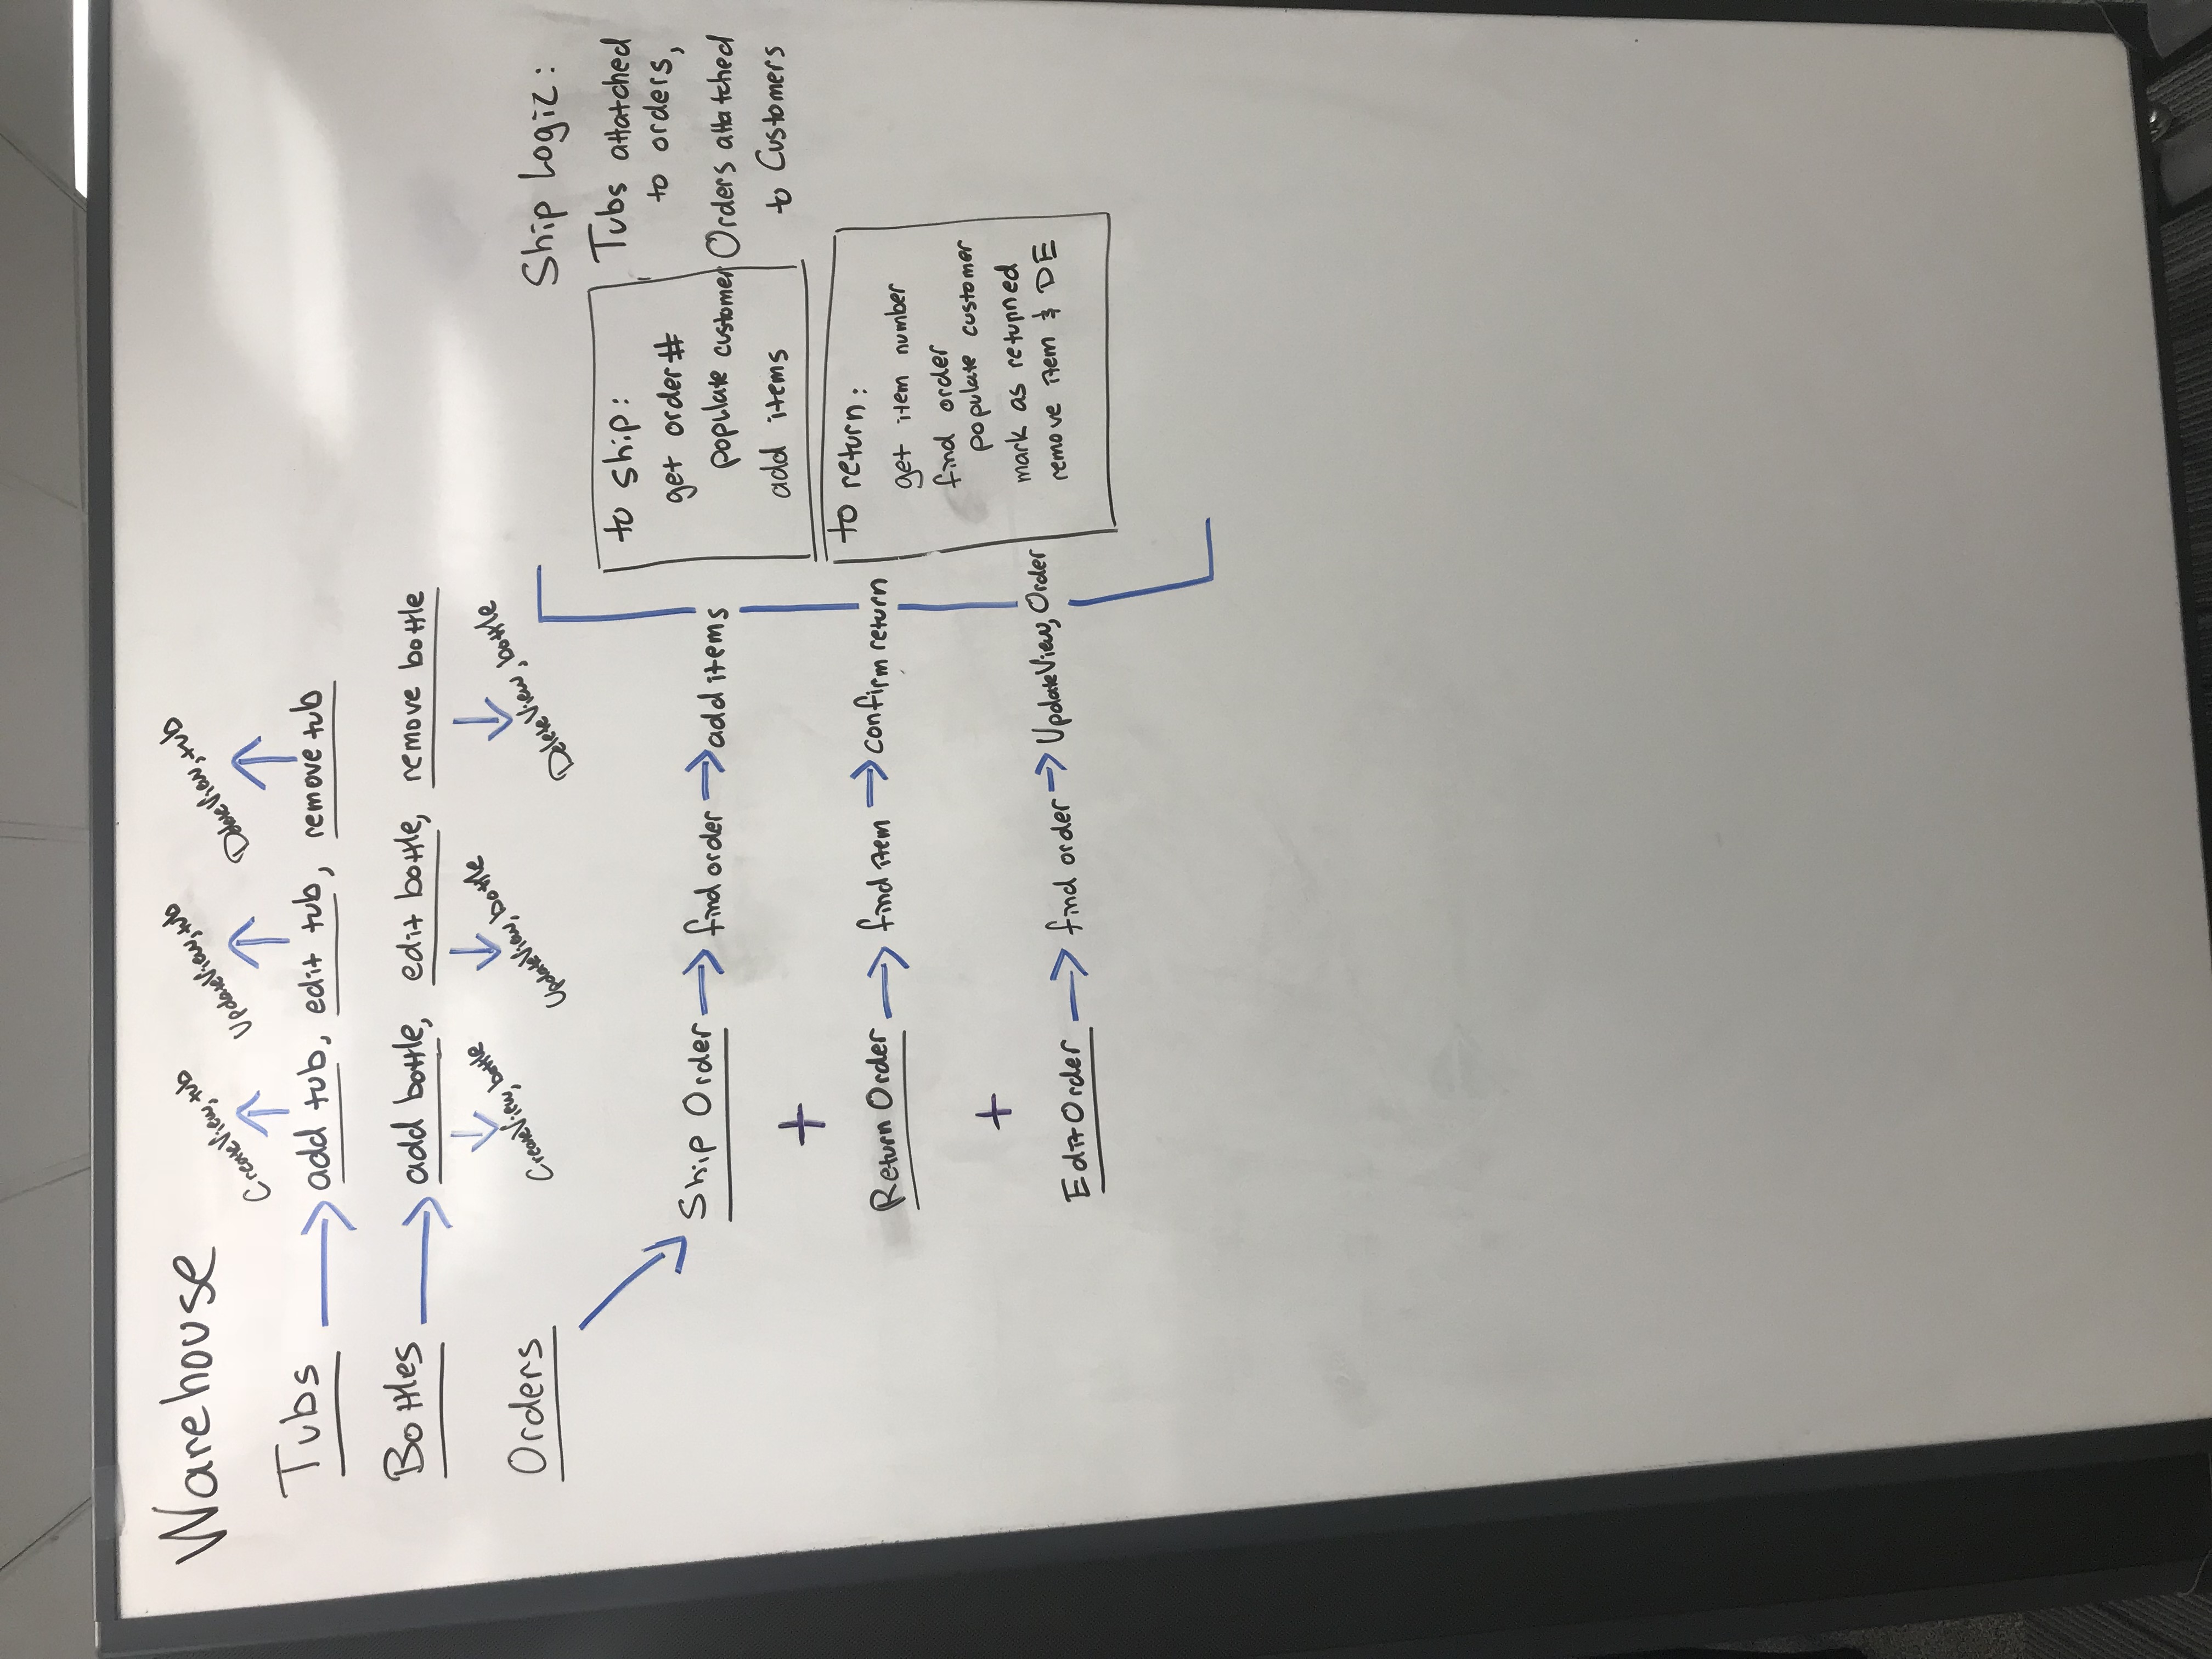 Warehouse
CreateView, tub
UpdateView, tub
DeleteView, tub
Tubs → add tub, edit tub, remove tub
Bottles → add bottle, edit bottle, remove bottle
CreateView, bottle
UpdateView, bottle
DeleteView, bottle
Orders
Ship Order → find order → add items
+
Return Order → find item → confirm return
+
Edit Order → find order → UpdateView, Order
to ship:
get order #
populate customer
add items
to return:
get item number
find order
populate customer
mark as returned
remove item & DE
Ship Logic:
Tubs attatched
to orders,
Orders attatched
to Customers